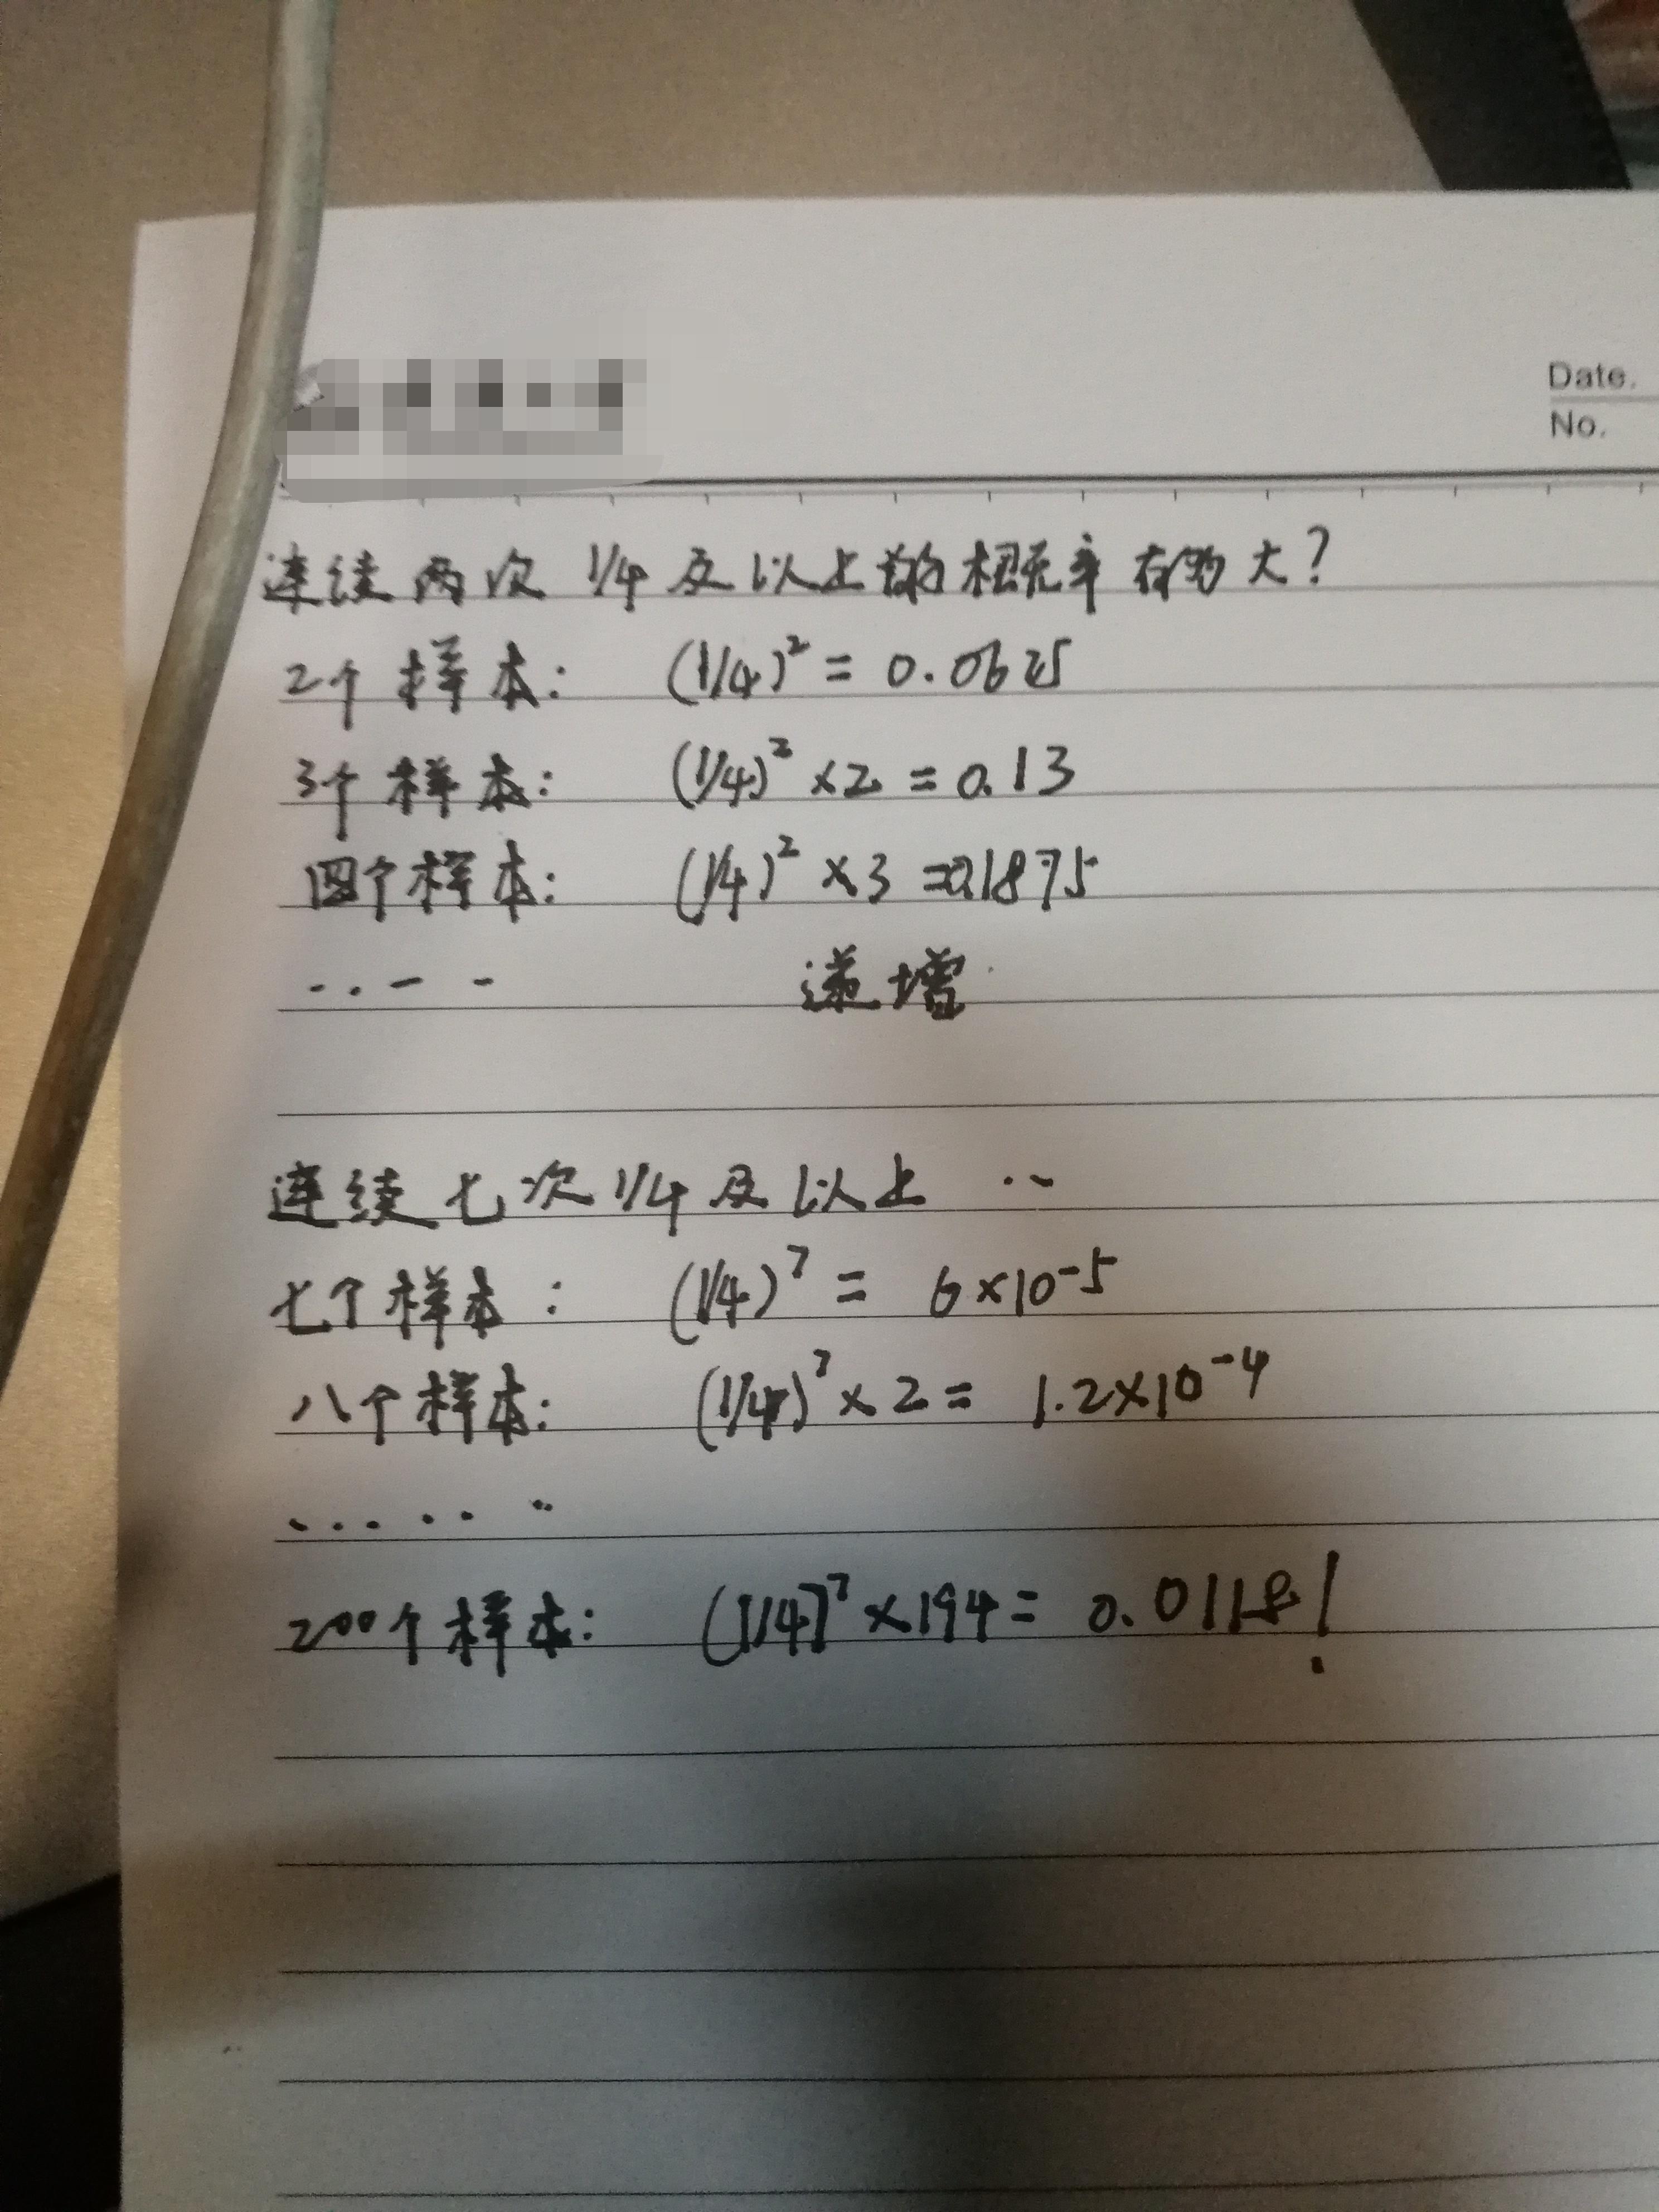 Date.
No.
连续两次 1/4 及以上的概率有多大?
2个样本: (1/4)² = 0.0625
3个样本: (1/4)² ×2 = 0.13
四个样本: (1/4)² ×3 =0.1875
...... 递增
连续七次 1/4 及以上 ...
七个样本: (1/4)⁷ = 6×10⁻⁵
八个样本: (1/4)⁷ ×2 = 1.2×10⁻⁴
......
200个样本: (1/4)⁷ ×194 = 0.0118!